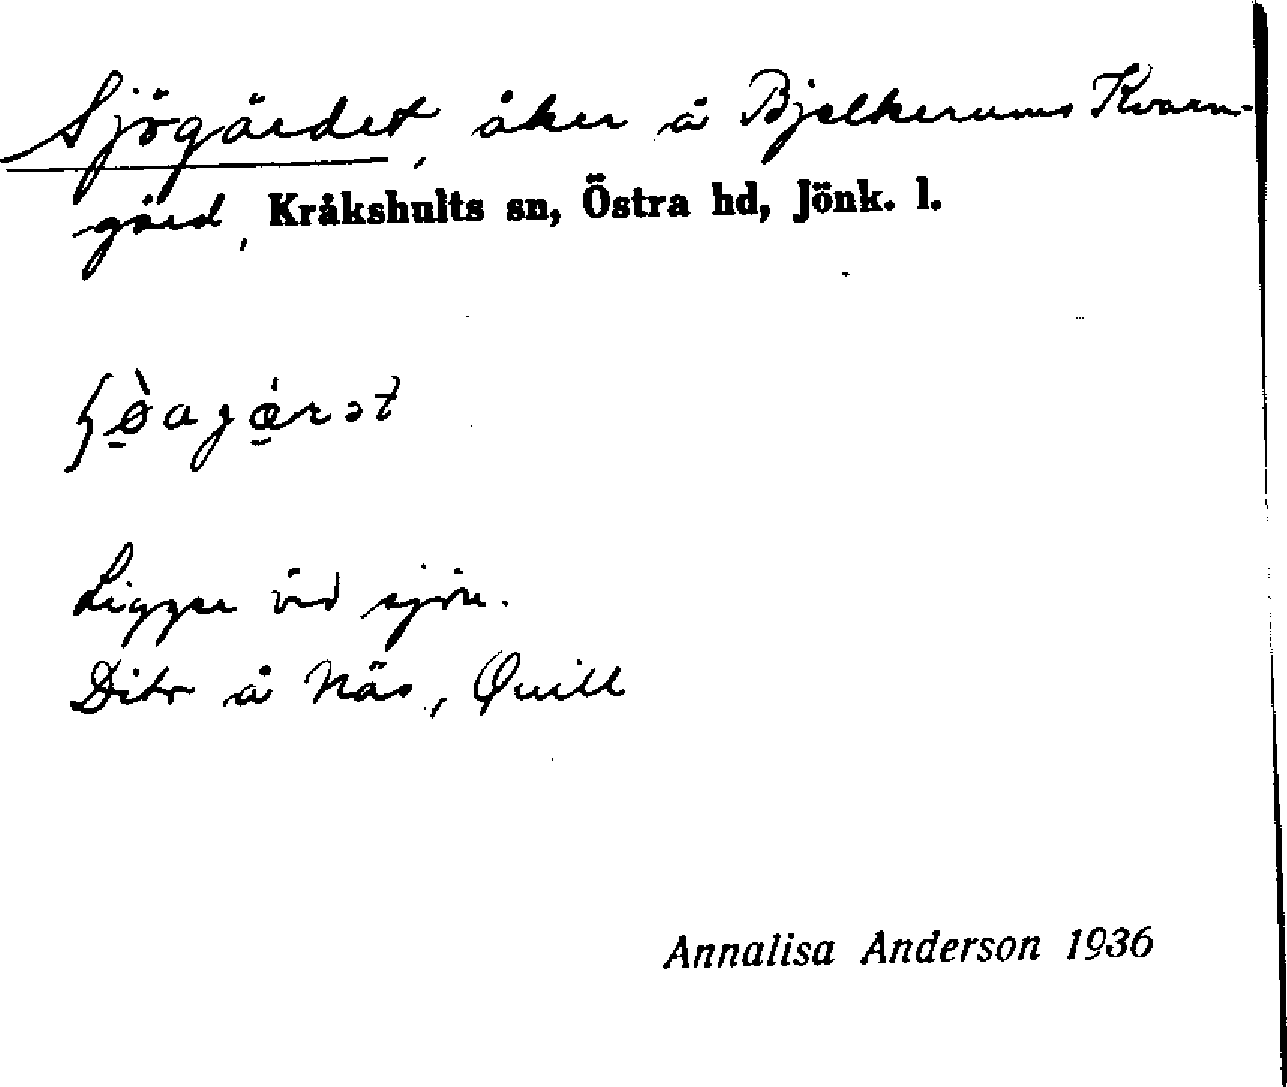 Sjögärdet, åker å Bjelkerums Kvarn-
gård, Kråkshults sn, Östra hd, Jönk. l.
Ligger vid sjön.
Dito å Näs, Quill
Annalisa Anderson 1936